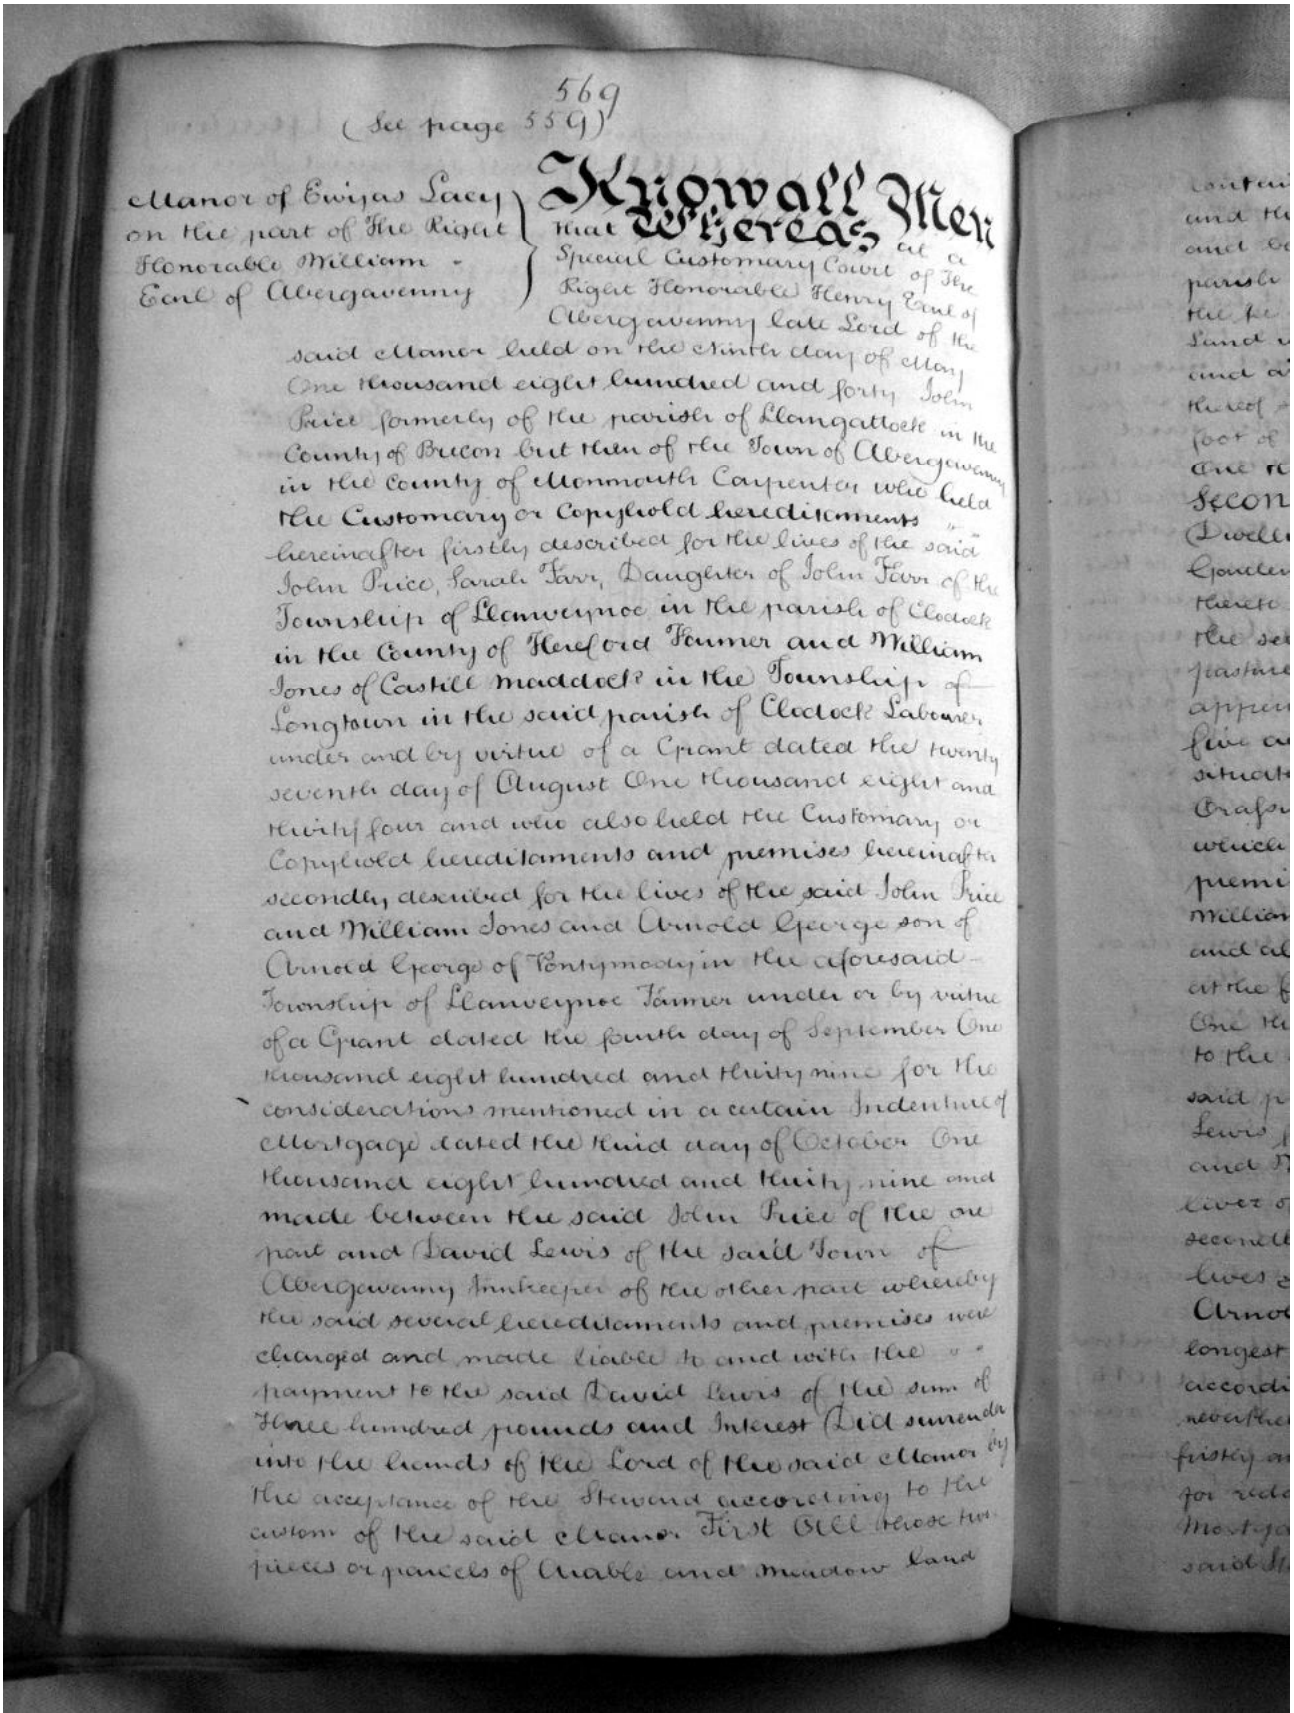 569
(See page 559)
Manor of Ewyas Lacy
on the part of The Right
Honorable William -
Earl of Abergavenny
Know all Men
that Whereas at a
Special Customary Court of The
Right Honorable Henry Earl of
Abergavenny late Lord of the
said Manor held on the Ninth day of May
One thousand eight hundred and forty John
Price formerly of the parish of Llangattock in the
County of Brecon but then of the Town of Abergavenny
in the County of Monmouth Carpenter who held
the Customary or Copyhold hereditaments "
hereinafter firstly described for the lives of the said
John Price, Sarah Farr, Daughter of John Farr of the
Township of Llanveynoe in the parish of Clodock
in the County of Hereford Farmer and William
Jones of Castill Maddock in the Township of
Longtown in the said parish of Clodock Labourer
under and by virtue of a Grant dated the twenty
seventh day of August One thousand eight and
thirty four and who also held the Customary or
Copyhold hereditaments and premises hereinafter
secondly described for the lives of the said John Price
and William Jones and Arnold George son of
Arnold George of Pontymody in the aforesaid -
Township of Llanveynoe Farmer under or by virtue
of a Grant dated the fourth day of September One
thousand eight hundred and thirty nine for the
considerations mentioned in a certain Indenture of
Mortgage dated the third day of October One
thousand eight hundred and thirty nine and
made between the said John Price of the one
part and David Lewis of the said Town of
Abergavenny Innkeeper of the other part whereby
the said several hereditaments and premises were
charged and made liable to and with the " "
payment to the said David Lewis of the sum of
Three hundred pounds and Interest Did surrender
into the hands of the Lord of the said Manor by
the acceptance of the Steward according to the
custom of the said Manor First All those two
pieces or parcels of Arable and meadow land
and the
parish
Land
thereof
foot of
Secon
the
pasture
five
situate
which
premi
William
at the
One th
to the
said p
Lewis
and
secondl
lives
Arnol
longest
accordi
firstly
for
said